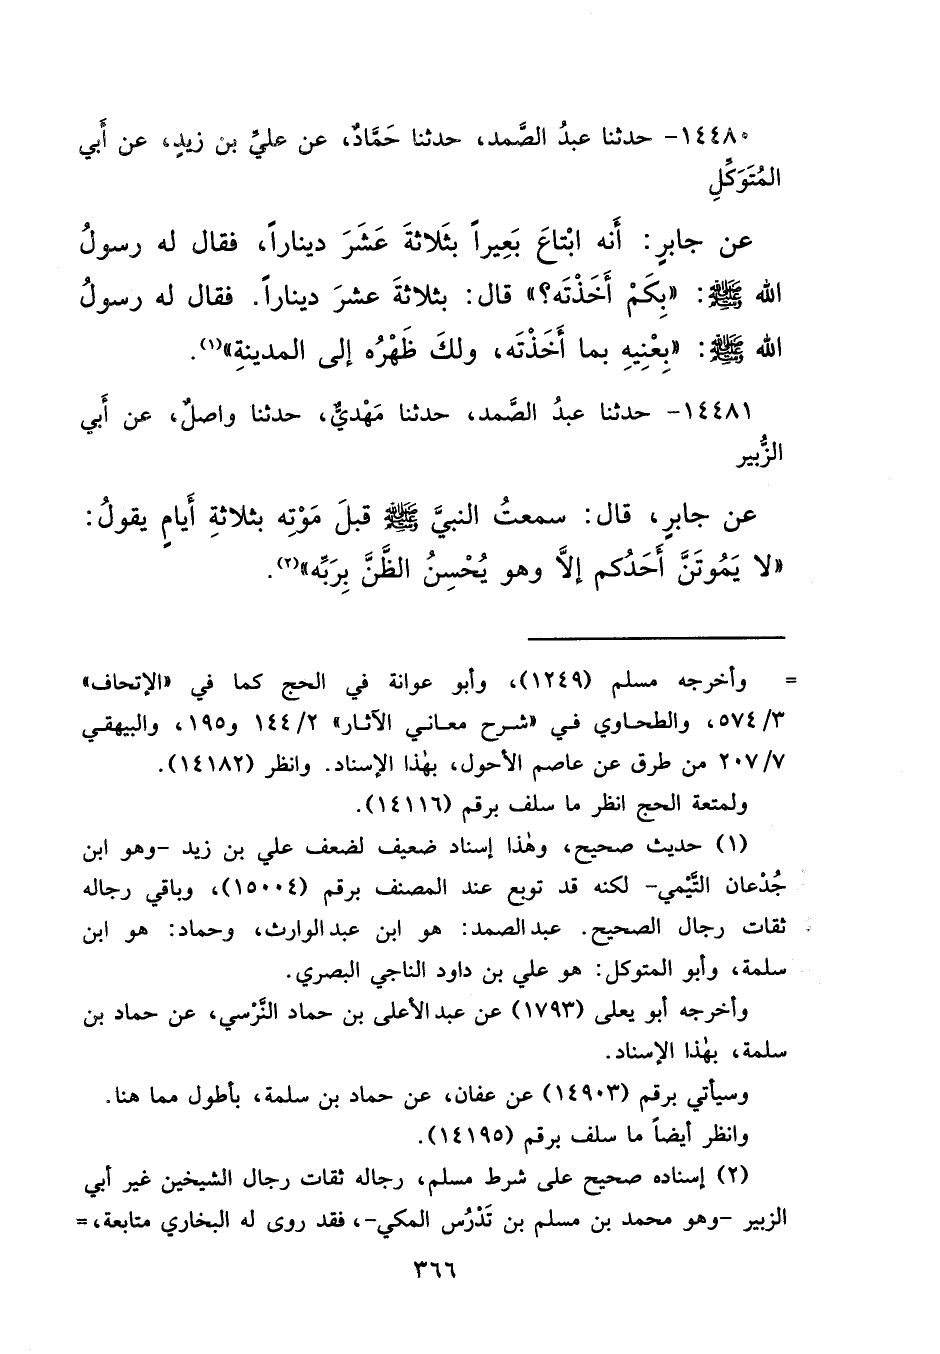 ١٤٤٨٠- حدثنا عبدُ الصَّمد، حدثنا حَمَّادٌ، عن عليِّ بن زيدٍ، عن أَبي
المُتَوَكِّلِ
عن جابرٍ: أَنه ابْتاعَ بَعِيراً بثَلاثةَ عَشَرَ ديناراً، فقال له رسولُ
الله ﷺ: «بِكَمْ أَخَذْتَه؟» قال: بثلاثةَ عشرَ ديناراً. فقال له رسولُ
الله ﷺ: «بِعْنِيهِ بما أَخَذْتَه، ولكَ ظَهْرُه إلى المدينةِ»(١).
١٤٤٨١- حدثنا عبدُ الصَّمد، حدثنا مَهْديٌّ، حدثنا واصلٌ، عن أَبي
الزُّبير
عن جابرٍ، قال: سمعتُ النبيَّ ﷺ قبلَ مَوْتِه بثلاثةِ أَيامٍ يقولُ:
«لا يَمُوتَنَّ أَحَدُكم إلاَّ وهو يُحْسِنُ الظَّنَّ بِرَبِّه»(٢).
= وأخرجه مسلم (١٢٤٩)، وأبو عوانة في الحج كما في «الإتحاف»
٥٧٤/٣، والطحاوي في «شرح معاني الآثار» ١٤٤/٢ و١٩٥، والبيهقي
٢٠٧/٧ من طرق عن عاصم الأحول، بهٰذا الإسناد. وانظر (١٤١٨٢).
ولمتعة الحج انظر ما سلف برقم (١٤١١٦).
(١) حديث صحيح، وهٰذا إسناد ضعيف لضعف علي بن زيد -وهو ابن
جُدْعان التَّيْمي- لكنه قد توبع عند المصنف برقم (١٥٠٠٤)، وباقي رجاله
ثقات رجال الصحيح. عبدالصمد: هو ابن عبدالوارث، وحماد: هو ابن
سلمة، وأبو المتوكل: هو علي بن داود الناجي البصري.
وأخرجه أبو يعلى (١٧٩٣) عن عبدالأعلى بن حماد النَّرْسي، عن حماد بن
سلمة، بهٰذا الإسناد.
وسيأتي برقم (١٤٩٠٣) عن عفان، عن حماد بن سلمة، بأطول مما هنا.
وانظر أيضاً ما سلف برقم (١٤١٩٥).
(٢) إسناده صحيح على شرط مسلم، رجاله ثقات رجال الشيخين غير أبي
الزبير -وهو محمد بن مسلم بن تَدْرُس المكي-، فقد روى له البخاري متابعة، =
٣٦٦